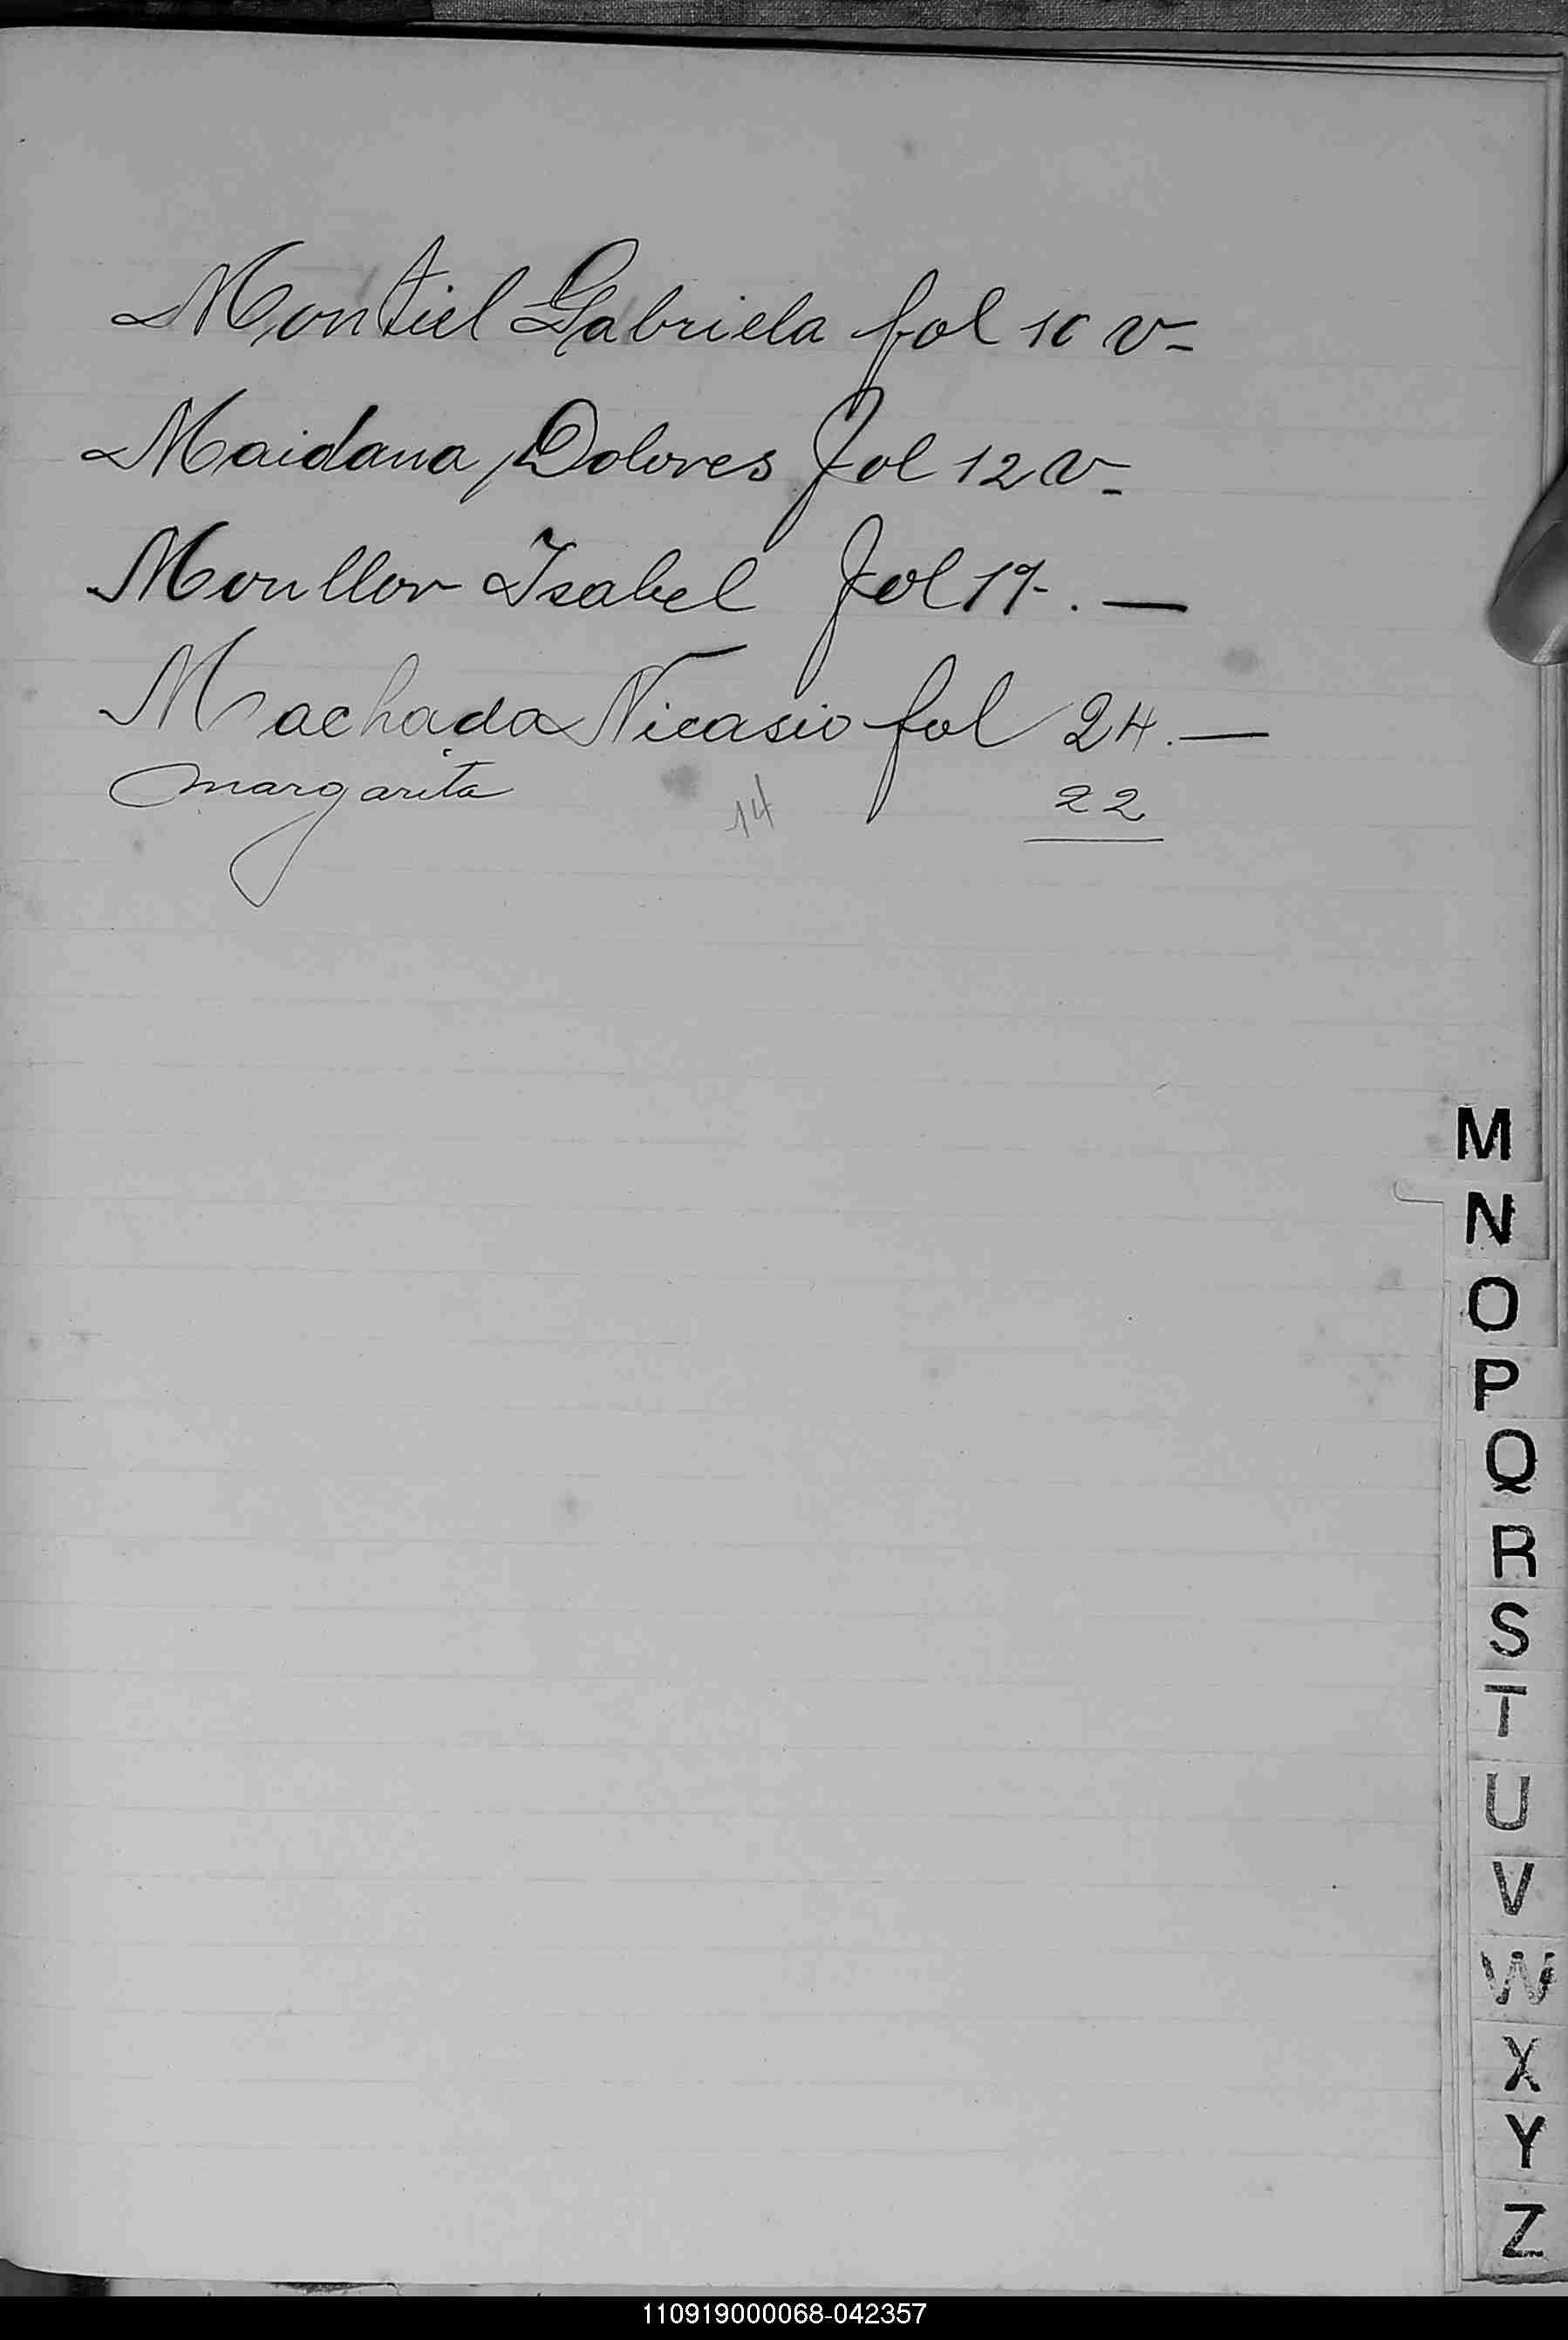 Montiel Gabriela fol 10 v-
Maidana, Dolores fol 12 v-
Moullor Isabel fol 17-. —
Machado Nicasio fol 24. —
margarita 14 22
M
N
O
P
Q
R
S
T
U
V
W
X
Y
Z
110919000068-042357